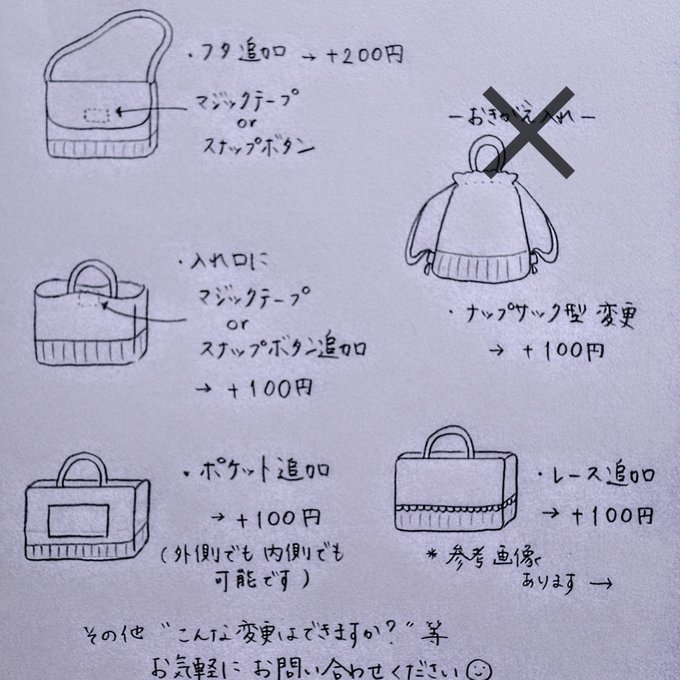 ・フタ追加 → +200円
マジックテープ
or
スナップボタン
ーおきがえ入れー
・ナップサック型 変更
→ +100円
・入れ口に
マジックテープ
or
スナップボタン追加
→ +100円
・ポケット追加
→ +100円
(外側でも内側でも
可能です)
・レース追加
→ +100円
*参考画像
あります →
その他 "こんな変更はできますか?" 等
お気軽に お問い合わせください☺